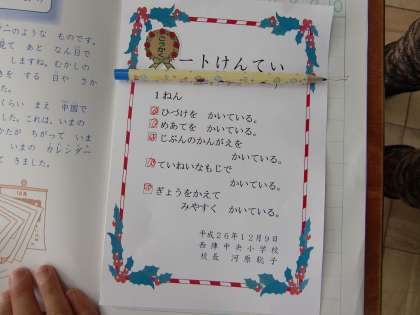 ーのような ものです。
見て あと なん日で
し、むすねしの
きを する 日や さか
た。
くらい まえ 中国で
した。これは、いまの
かたが ちがって いま
いまの カレンダー
て きました。
ートけんてい
1ねん
ひづけを かいている。
めあてを かいている。
じぶんのかんがえを
かいている。
ていねいなもじで
かいている。
ぎょうをかえて
みやすく かいている。
平成26年12月9日
西陣中央小学校
校長 河原聡子